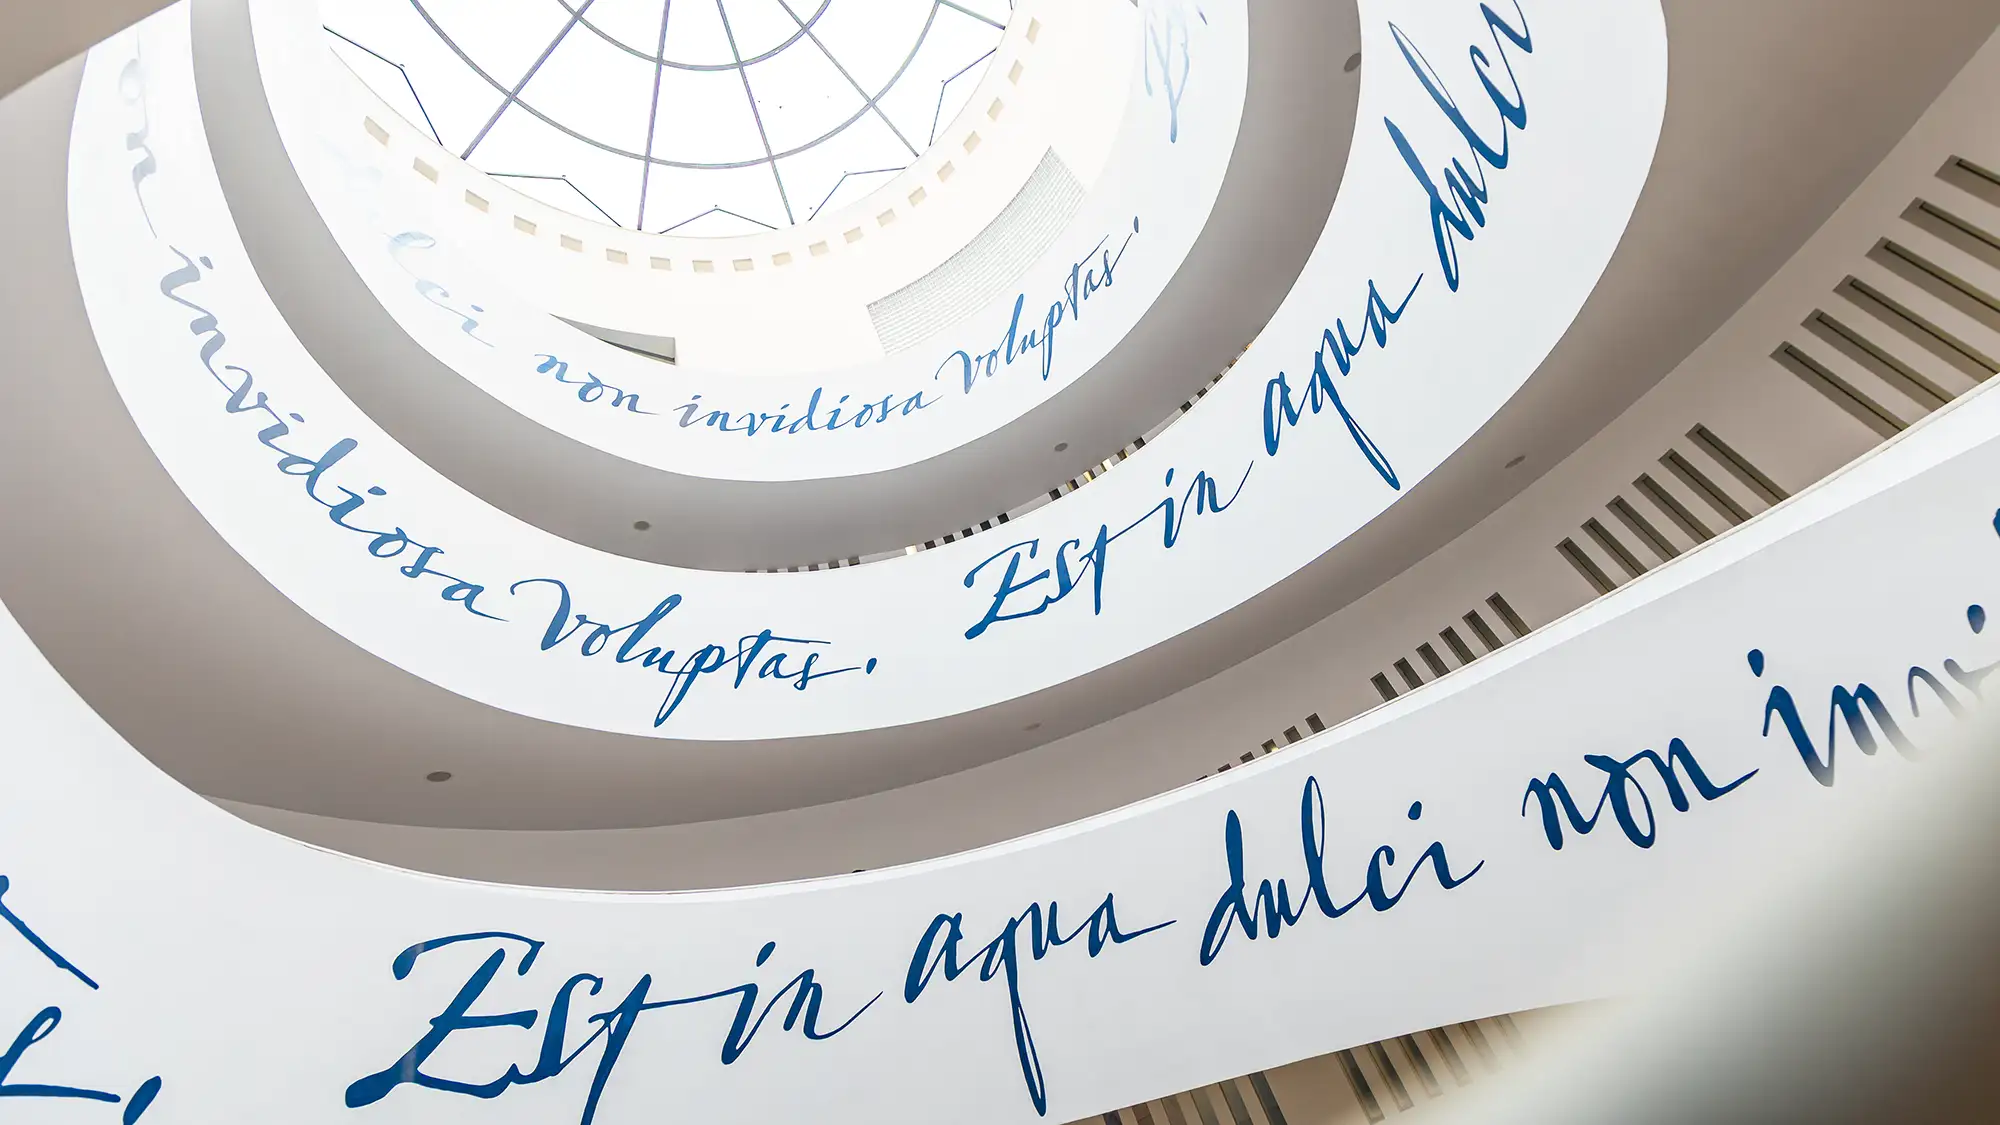 non invidiosa voluptas.
invidiosa voluptas. Est in aqua dulci
Est in aqua dulci non